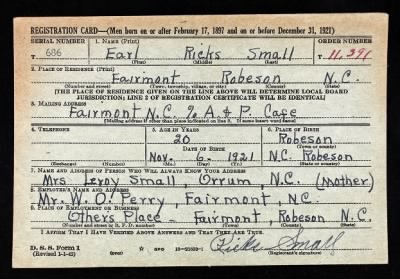 REGISTRATION CARD—(Men born on or after February 17, 1897 and on or before December 31, 1921)
SERIAL NUMBER 1. NAME (Print) ORDER NUMBER
T 686 Earl Ricks Small T 11,391
(First) (Middle) (Last)
2. PLACE OF RESIDENCE (Print)
Fairmont Robeson N.C.
(Number and street) (Town, township, village, or city) (County) (State)
[THE PLACE OF RESIDENCE GIVEN ON THE LINE ABOVE WILL DETERMINE LOCAL BOARD
JURISDICTION; LINE 2 OF REGISTRATION CERTIFICATE WILL BE IDENTICAL]
3. MAILING ADDRESS
Fairmont N.C. % A. & P. Cafe
[Mailing address if other than place indicated on line 2. If same insert word same]
4. TELEPHONE 5. AGE IN YEARS 6. PLACE OF BIRTH
20 Robeson
DATE OF BIRTH (Town or county)
Nov. 6. 1921 N.C. Robeson
(Exchange) (Number) (Mo.) (Day) (Yr.) (State or country)
7. NAME AND ADDRESS OF PERSON WHO WILL ALWAYS KNOW YOUR ADDRESS
Mrs. Leroy Small Orrum, N.C. (Mother)
8. EMPLOYER'S NAME AND ADDRESS
Mr. W. O. Perry, Fairmont, N.C.
9. PLACE OF EMPLOYMENT OR BUSINESS
Others Place - Fairmont, Robeson N.C.
(Number and street or R. F. D. number) (Town) (County) (State)
I AFFIRM THAT I HAVE VERIFIED ABOVE ANSWERS AND THAT THEY ARE TRUE.
D. S. S. Form 1
(Revised 1-1-42) GPO 16-21630-1 Ricks Small
(over) (Registrant's signature)